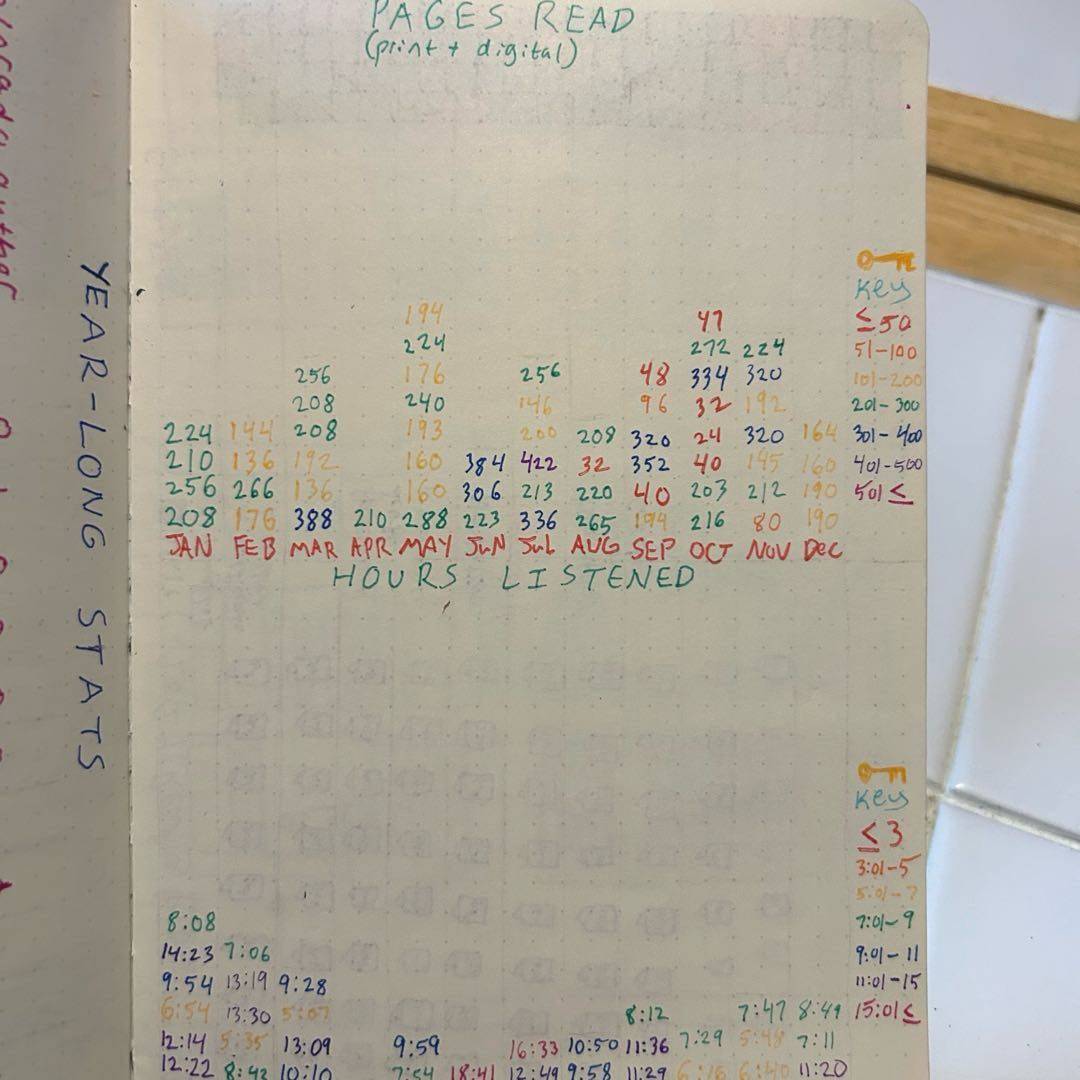 PAGES READ
(print + digital)
194
47
224
272 224
256 176 256 48 334 320
208 240 146 96 32 192
224 144 208 193 200 208 320 24 320 164
210 136 192 160 384 422 32 352 40 145 160
256 266 136 160 306 213 220 40 203 212 190
208 176 388 210 288 223 336 265 194 216 80 190
JAN FEB MAR APR MAY JUN JUL AUG SEP OCT NOV DEC
Key
≤50
51-100
101-200
201-300
301-400
401-500
501≤
HOURS LISTENED
8:08
14:23 7:06
9:54 13:19 9:28
6:54 13:30 5:07 8:12 7:47 8:49
12:14 5:35 13:09 9:59 16:33 10:50 11:36 7:29 5:48 7:11
12:22 8:42 10:10 7:54 18:41 12:49 9:58 11:29 6:40 11:20
Key
≤3
3:01-5
5:01-7
7:01-9
9:01-11
11:01-15
15:01≤
YEAR-LONG STATS